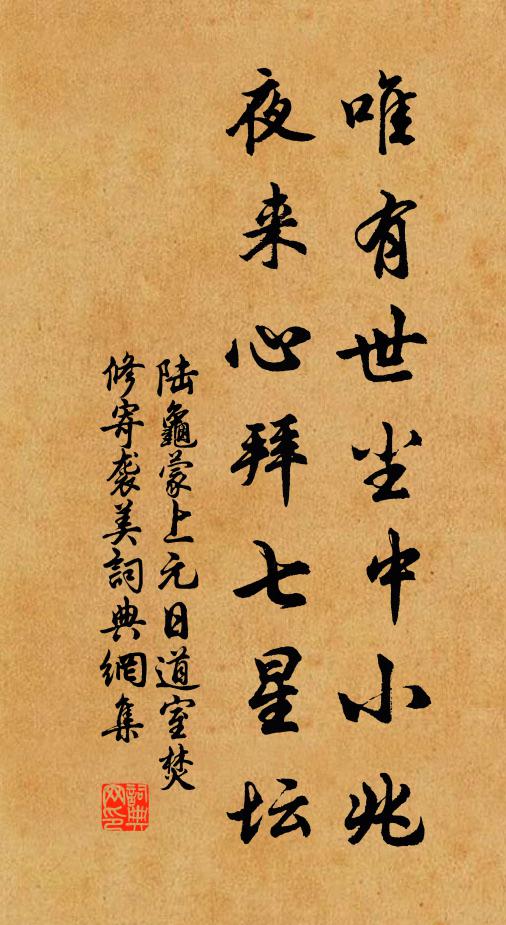 唯有世尘中小兆
夜来心拜七星坛
陆龜蒙上元日道室焚
修寄袭美詞典網集
詞典网印